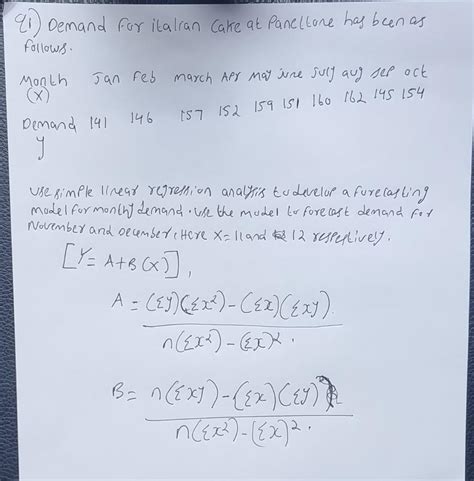 Q1) Demand for italian cake at Panettone has been as
follows.
Month Jan Feb march Apr may june July aug sep oct
(x)
Demand 141 146 157 152 159 151 160 162 145 154
y
use simple linear regression analysis to develop a forecasting
model for monthly demand. use the model to forecast demand for
November and december, Here x = 11 and 12 respectively.
[Y = A+B(X)],
A = (Σy)(Σx²) - (Σx)(Σxy)
n(Σx²) - (Σx)².
B = n(Σxy) - (Σx)(Σy)
n(Σx²) - (Σx)².